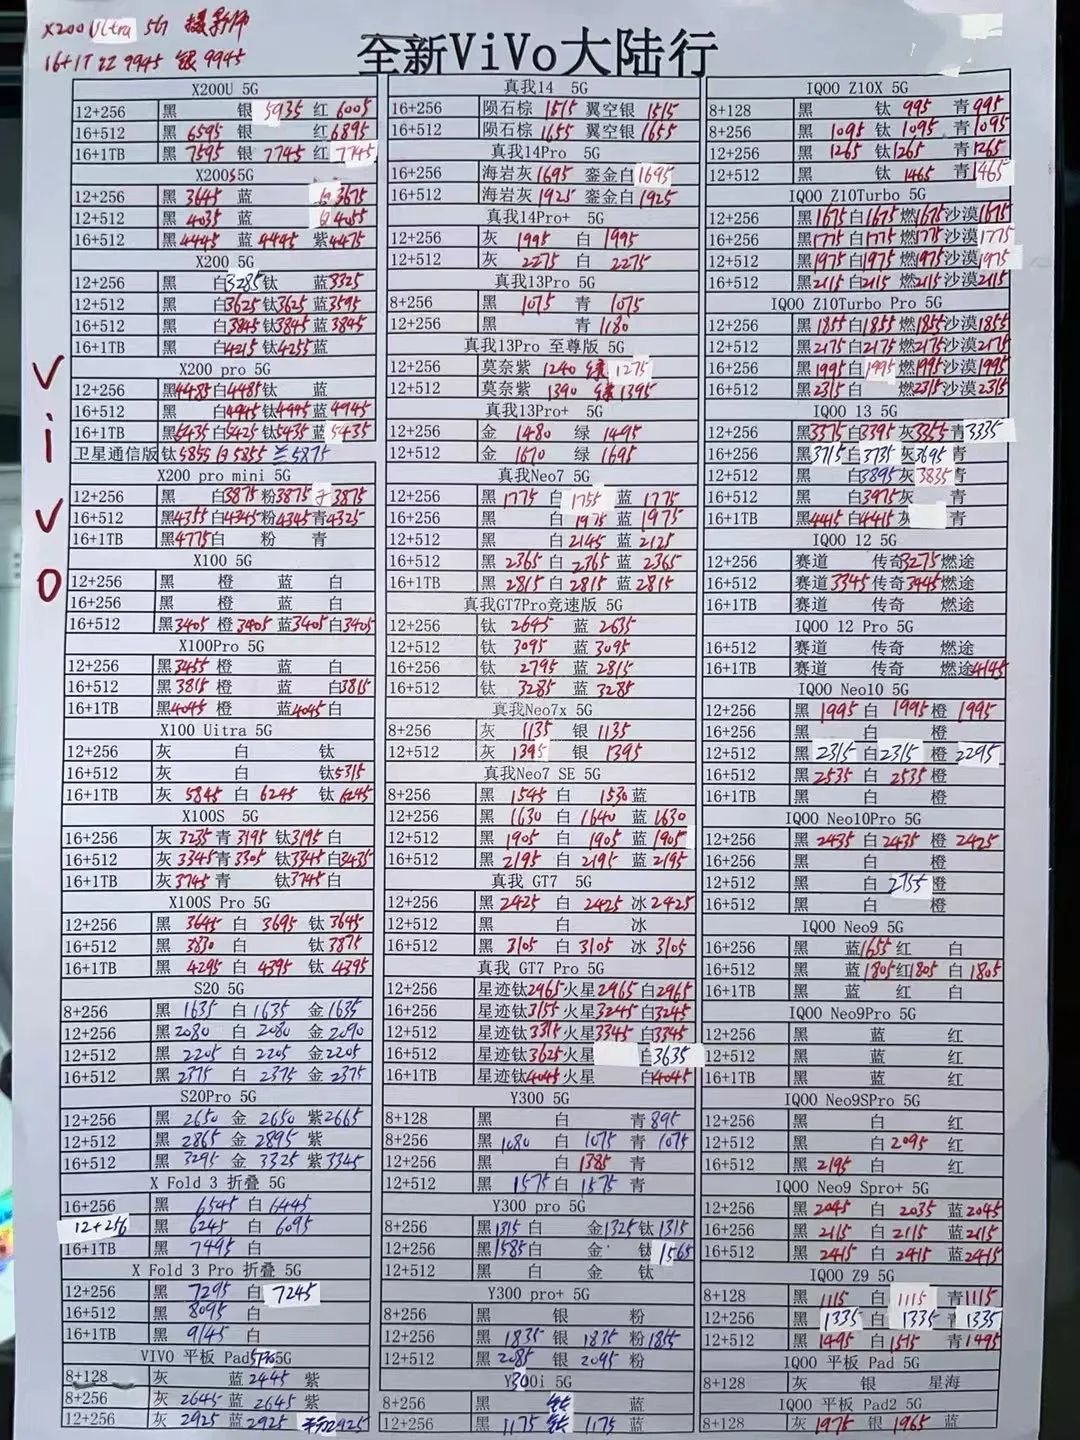 X200 Ultra 5G 摄影师
16+1T 红 9945 银 9945
全新ViVo大陆行
vivo
X200U 5G
12+256 黑 银 5935 红 6005
16+512 黑 6595 银 红 6895
16+1TB 黑 7595 银 7745 红 7745
X200S5G
12+256 黑 3645 蓝 白 3675
12+512 黑 4035 蓝 白 4055
16+512 黑 4445 蓝 4445 紫 4475
X200 5G
12+256 黑 白3285 钛 蓝3325
12+512 黑 白3625 钛3625 蓝3595
16+512 黑 白3845 钛3845 蓝3845
16+1TB 黑 白4215 钛4255 蓝
X200 pro 5G
12+256 黑4485 白4485 钛 蓝
16+512 黑 白4945 钛4945 蓝4945
16+1TB 黑5435 白5425 钛5435 蓝5435
卫星通信版 钛5855 白5855 兰5875
X200 pro mini 5G
12+256 黑 白3875 粉3875 3875
16+512 黑4355 白4345 粉4345 青4325
16+1TB 黑4775 白 粉 青
X100 5G
12+256 黑 橙 蓝 白
16+256 黑 橙 蓝 白
16+512 黑3405 橙3405 蓝3405 白3405
X100Pro 5G
12+256 黑3455 橙 蓝 白
16+512 黑3815 橙 蓝 白3815
16+1TB 黑4045 橙 蓝4045 白
X100 Uitra 5G
12+256 灰 白 钛
16+512 灰 白 钛5315
16+1TB 灰 5845 白 6245 钛 6245
X100S 5G
16+256 灰 3235 青 3195 钛3195 白
16+512 灰 3345 青 3305 钛3345 白3435
16+1TB 灰3745 青 钛3745 白
X100S Pro 5G
12+256 黑 3645 白 3695 钛 3645
16+512 黑 3830 白 钛 3875
16+1TB 黑 4295 白 4395 钛 4395
S20 5G
8+256 黑 1635 白 1635 金 1635
12+256 黑 2080 白 2080 金 2090
12+512 黑 2205 白 2205 金 2205
16+512 黑 2375 白 2375 金 2375
S20Pro 5G
12+256 黑 2650 金 2650 紫2665
12+512 黑 2865 金 2895 紫
16+512 黑 3295 金 3325 紫 3345
X Fold 3 折叠 5G
16+256 黑 6545 白 6445
12+256 黑 6245 白 6095
16+1TB 黑 7495 白
X Fold 3 Pro 折叠 5G
12+256 黑 7295 白 7245
16+512 黑 8095 白
16+1TB 黑 9145 白
VIVO 平板 Pad5Pro5G
8+128 灰 蓝 2445 紫
8+256 灰 2645 蓝 2645 紫
12+256 灰 2925 蓝 2925 紫2925
真我14 5G
16+256 陨石棕 1515 翼空银 1515
16+512 陨石棕 1655 翼空银 1655
真我14Pro 5G
16+256 海岩灰1695 銮金白1695
16+512 海岩灰1925 銮金白1925
真我14Pro+ 5G
12+256 灰 1995 白 1995
12+512 灰 2275 白 2275
真我13Pro 5G
8+256 黑 1075 青 1075
12+256 黑 青 1180
真我13Pro 至尊版 5G
12+256 莫奈紫 1240 绿 1275
12+512 莫奈紫 1390 绿 1395
真我13Pro+ 5G
12+256 金 1480 绿 1495
12+512 金 1670 绿 1695
真我Neo7 5G
12+256 黑 1775 白 1755 蓝 1775
16+256 黑 白 1975 蓝 1975
12+512 黑 白 2145 蓝 2125
16+512 黑 2365 白 2365 蓝 2365
16+1TB 黑 2815 白 2815 蓝 2815
真我GT7Pro竞速版 5G
12+256 钛 2645 蓝 2635
12+512 钛 3095 蓝 3095
16+256 钛 2795 蓝 2815
16+512 钛 3285 蓝 3285
真我Neo7x 5G
8+256 灰 1135 银 1135
12+512 灰 1395 银 1395
真我Neo7 SE 5G
8+256 黑 1545 白 1530 蓝
12+256 黑 1630 白 1640 蓝 1630
12+512 黑 1905 白 1905 蓝 1905
16+512 黑 2195 白 2195 蓝 2195
真我 GT7 5G
12+256 黑 2425 白 2425 冰 2425
12+512 黑 白 冰
16+512 黑 3105 白 3105 冰 3105
真我 GT7 Pro 5G
12+256 星迹钛2965 火星 2965 白2965
16+256 星迹钛3155 火星3245 白3245
12+512 星迹钛3315 火星3345 白3345
16+512 星迹钛3625 火星 白3635
16+1TB 星迹钛4045 火星 白4045
Y300 5G
8+128 黑 白 青 895
8+256 黑 1080 白 1075 青 1075
12+256 黑 白 1385 青
12+512 黑 1575 白 1575 青
Y300 pro 5G
8+256 黑1315 白 金1325 钛 1315
12+256 黑1585 白 金 钛 1565
12+512 黑 白 金 钛
Y300 pro+ 5G
8+256 黑 银 粉
12+256 黑 1835 银 1835 粉 1855
12+512 黑 2085 银 2095 粉
Y300i 5G
8+256 黑 钛 蓝
12+256 黑 1175 钛 1175 蓝
IQOO Z10X 5G
8+128 黑 钛 995 青 995
8+256 黑 1095 钛 1095 青 1095
12+256 黑 1265 钛1265 青1265
12+512 黑 钛 1465 青 1465
IQOO Z10Turbo 5G
12+256 黑1675 白1675 燃1675 沙漠1675
16+256 黑1775 白1775 燃1775 沙漠1775
12+512 黑1975 白1975 燃1975 沙漠1975
16+512 黑2115 白2115 燃2115 沙漠2115
IQOO Z10Turbo Pro 5G
12+256 黑1855 白1855 燃1855 沙漠1855
12+512 黑2175 白2175 燃2175 沙漠2175
16+256 黑1995 白1995 燃1995 沙漠1995
16+512 黑2315 白 燃2315 沙漠2315
IQOO 13 5G
12+256 黑3375 白3395 灰3355 青3335
16+256 黑3715 白3735 灰3695 青
12+512 黑 白3895 灰3835 青
16+512 黑 白3975 灰 青
16+1TB 黑4415 白4415 灰 青
IQOO 12 5G
12+256 赛道 传奇3275 燃途
16+512 赛道 3345 传奇 3445 燃途
16+1TB 赛道 传奇 燃途
IQOO 12 Pro 5G
16+512 赛道 传奇 燃途
16+1TB 赛道 传奇 燃途4145
IQOO Neo10 5G
12+256 黑 1995 白 1995 橙 1995
16+256 黑 白 橙
12+512 黑 2315 白2315 橙 2295
16+512 黑 2535 白 2535 橙
16+1TB 黑 白 橙
IQOO Neo10Pro 5G
12+256 黑 2435 白2435 橙 2425
16+256 黑 白 橙
12+512 黑 白 2755 橙
16+512 黑 白 橙
IQOO Neo9 5G
16+256 黑 蓝1655 红 白
16+512 黑 蓝 1805 红1805 白 1805
16+1TB 黑 蓝 红 白
IQOO Neo9Pro 5G
12+256 黑 蓝 红
12+512 黑 蓝 红
16+1TB 黑 蓝 红
IQOO Neo9SPro 5G
12+256 黑 白 红
12+512 黑 白 2095 红
16+512 黑 2195 白 红
IQOO Neo9 Spro+ 5G
12+256 黑 2045 白 2035 蓝2045
16+256 黑 2115 白 2115 蓝2115
16+512 黑 2415 白 2415 蓝2415
IQOO Z9 5G
8+128 黑 1115 白 1115 青1115
12+256 黑 1335 白 1335 青 1335
12+512 黑 1495 白 1515 青 1495
IQOO 平板 Pad 5G
8+128 灰 银 星海
IQOO 平板 Pad2 5G
8+128 灰 1975 银 1965 蓝